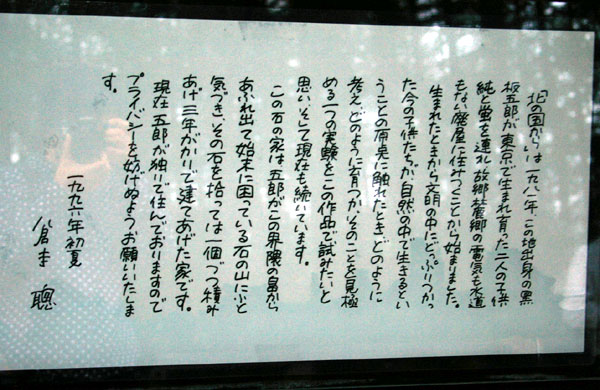 「北の国から」は一九八一年、この地出身の黒
板五郎が、東京で生まれ育った二人の子供
純と蛍を連れ、故郷麓郷の電気も水道
もない廃屋に住みつくことから始まりました。
生まれたときから文明の中にどっぷりつかっ
た今の子供たちが、自然の中で生きるとい
うことの原点に触れたとき、どのように
考え、どのように育つか、そのことを見極
める一つの実験をこの作品で試みたいと
思い、そして現在も続いています。
この石の家は、五郎がこの界隈の畠から
あふれ出て始末に困っている石の山にふと
気づき、その石を拾っては一個づつ積み
あげ、三年がかりで建てあげた家です。
現在、五郎が独りで住んでおりますので
プライバシーを妨げぬようお願いいたしま
す。
一九九六年初夏
倉本 聰